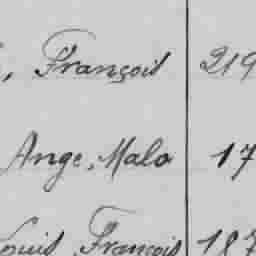 , François 219
Ange, Malo 17
Louis, François 187